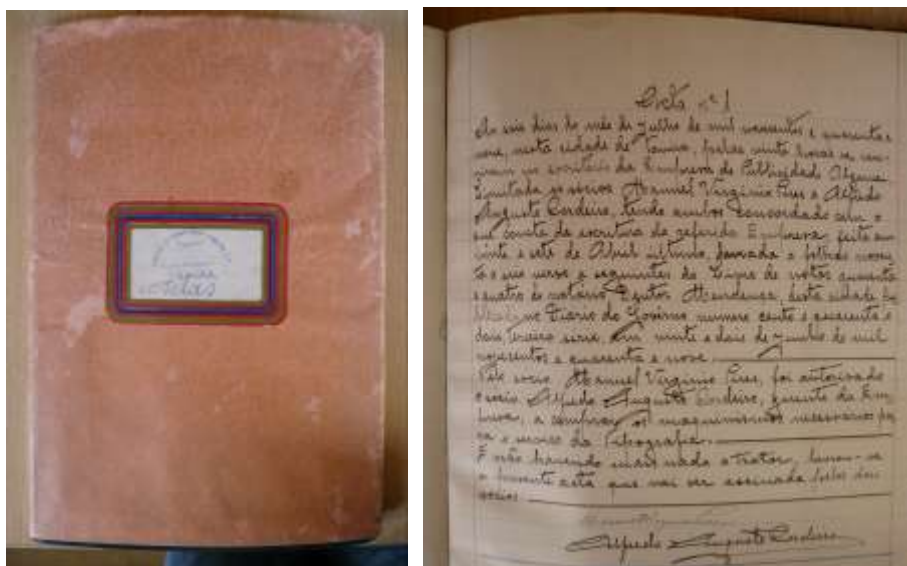 Actas
Acta nº 1
Aos seis dias do mês de Julho de mil novecentos e quarenta e
nove, nesta cidade de Tavira, pelas vinte horas se reu-
niram no escritório da Empresa de Publicidade Algarve
Limitada os sócios Manuel Virgínio Pires e Alfredo
Augusto Cordeiro, tendo ambos concordado com o
que consta da escritura da referida Empresa, feita em
vinte e sete de Abril último, lavrada a folhas noven-
ta e seis verso e seguintes do Livro de notas
e quatro do notário desta cidade
no Diário do Govêrno numero cento e quarenta e
dois, terceira serie, em vinte e dois de Junho de mil
novecentos e quarenta e nove.
Pelo socio Manuel Virginio Pires, foi autorizado
o socio Alfredo Augusto Cordeiro, gerente da Em-
presa, a comprar os maquinismos necessarios pa-
ra o serviço da Tipografia.
E não havendo mais nada a tratar, lavrou-se
a presente acta que vai ser assinada pelos dois
socios.
Alfredo Augusto Cordeiro